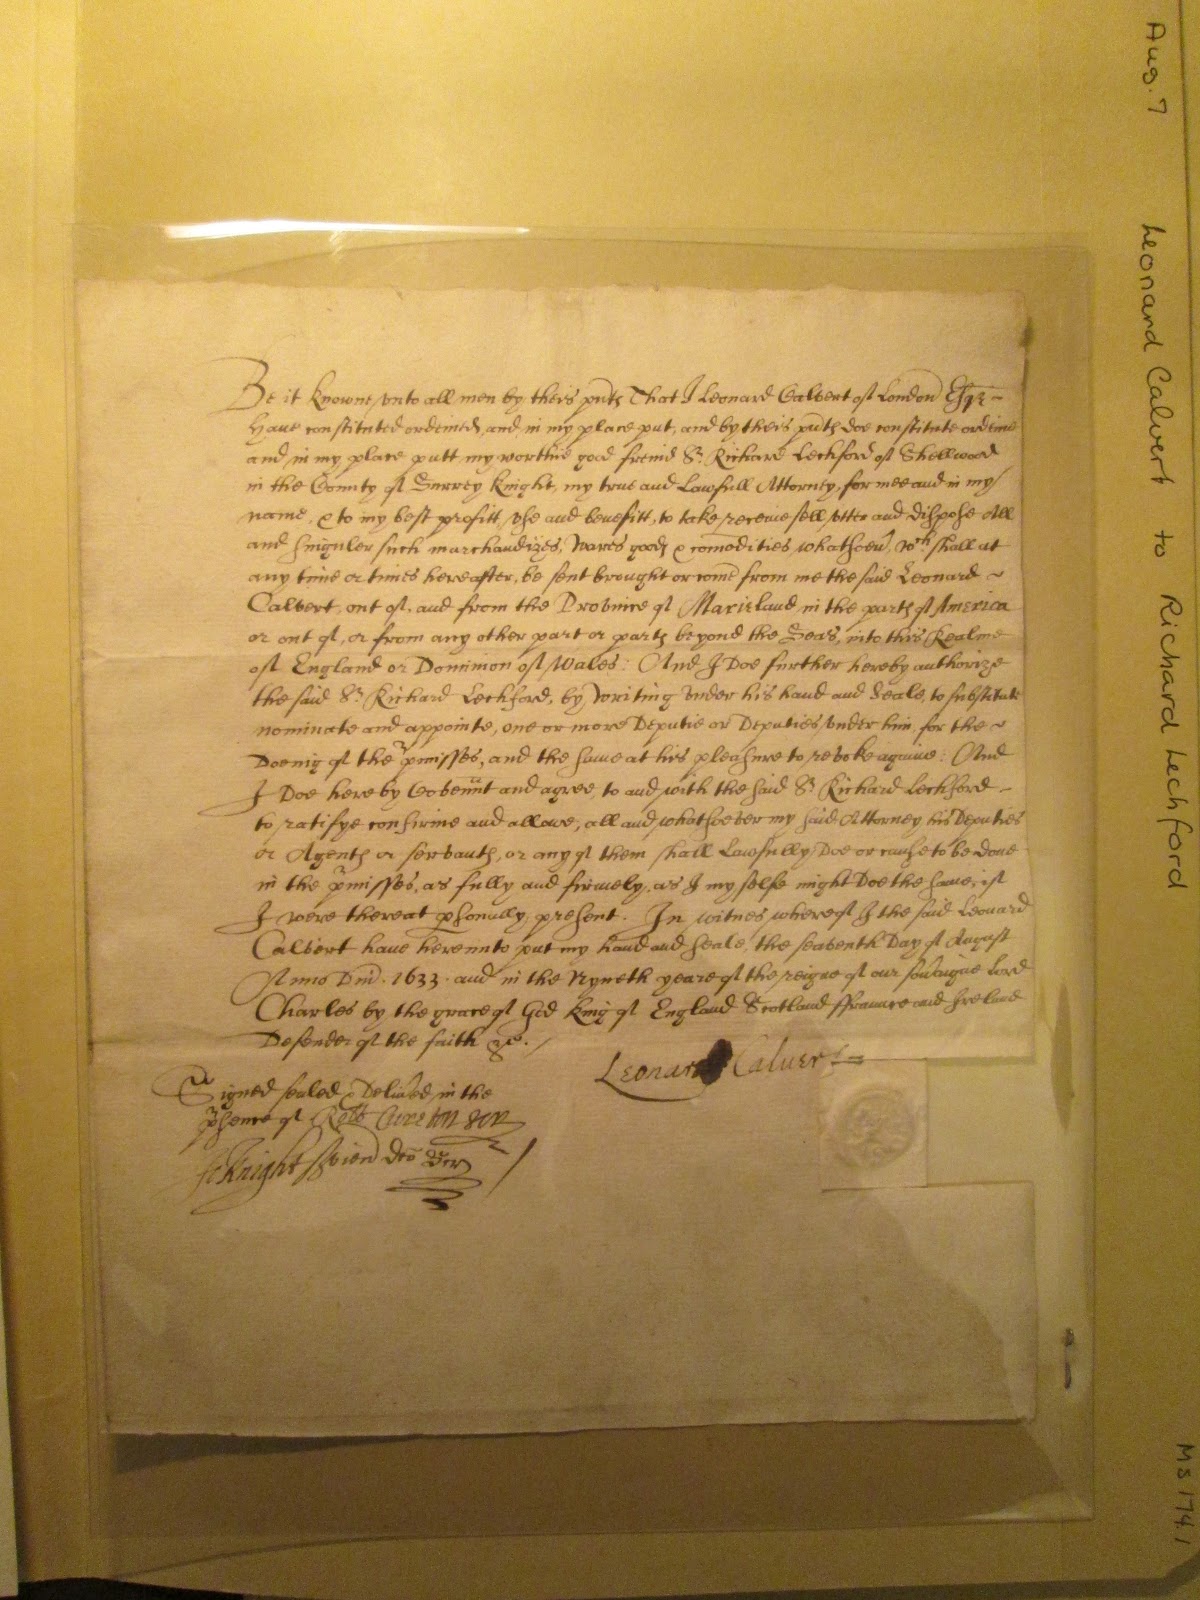 Be it knowne vnto all men by theis pnts That I Leonard Calvert of London Esqr
Haue constituted ordeined, and in my place put, and by theis pnts doe constitute ordeine
and in my place putt my worthie good freind Sr. Richard Lechford of Shellwood
in the County of Surrey Knight, my true and Lawfull Attorney, for mee and in my
name, & to my best profitt, vse and benefitt, to take receiue sell vtter and dispose All
and singuler such marchandizes, wares goods & comodities whatsoeu', wch shall at
any time or times hereafter, be sent brought or come from me the said Leonard
Calvert, out of, and from the Province of Marieland in the parts of America
or out of, or from any other part or parts beyond the Seas, into this Realme
of England or Dominion of Wales: And I Doe further hereby authorize
the said Sr. Richard Lechford, by writing vnder his hand and Seale, to substitute
nominate and appointe, one or more Deputie or Deputies vnder him, for the
Doeing of the pmisses, and the same at his pleasure to revoke againe: And
I Doe hereby Covennt and agree, to and with the said Sr. Richard Lechford
to ratifye confirme and allowe, all and whatsoever my said Attorney his Deputies
or Agents or servants, or any of them shall Lawfully Doe or cause to be done
in the pmisses, as fully and firmely, as I my selfe might Doe the same, if
I were thereat psonally present. In witnes whereof I the said Leonard
Calvert haue herevnto put my hand and seale, the seaventh Day of August
Anno Dni. 1633. and in the Nyneth yeare of the reigne of our soūaigne Lord
Charles by the grace of God King of England Scotland ffraunce and Ireland
Defender of the faith &c.
Leonard Calvert
Signed sealed & Deliūed in the
psence of
Knight
Aug. 7 Leonard Calvert to Richard Lechford MS 174.1